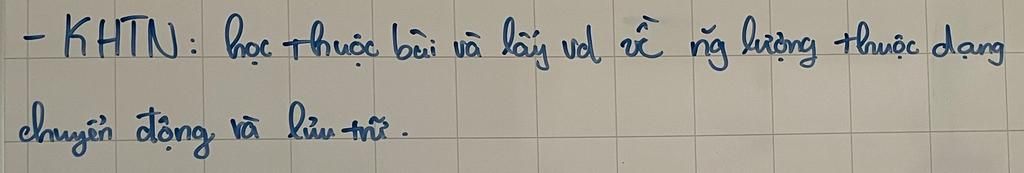 - KHTN: học thuộc bài và lấy vd về ňg lượng thuộc dạng
chuyển động và lưu trữ.